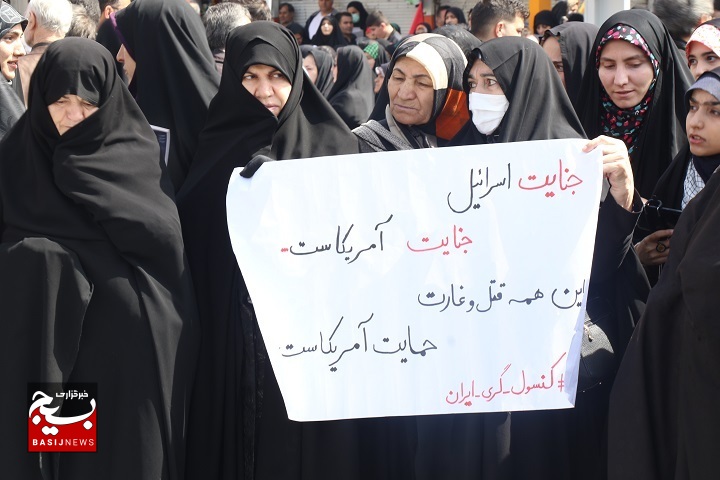 جنایت اسرائیل
جنایت آمریکاست
این همه قتل و غارت
حمایت آمریکاست
#کنسول_گری_ایران
خبرگزاری
بسیج
BASIJNEWS